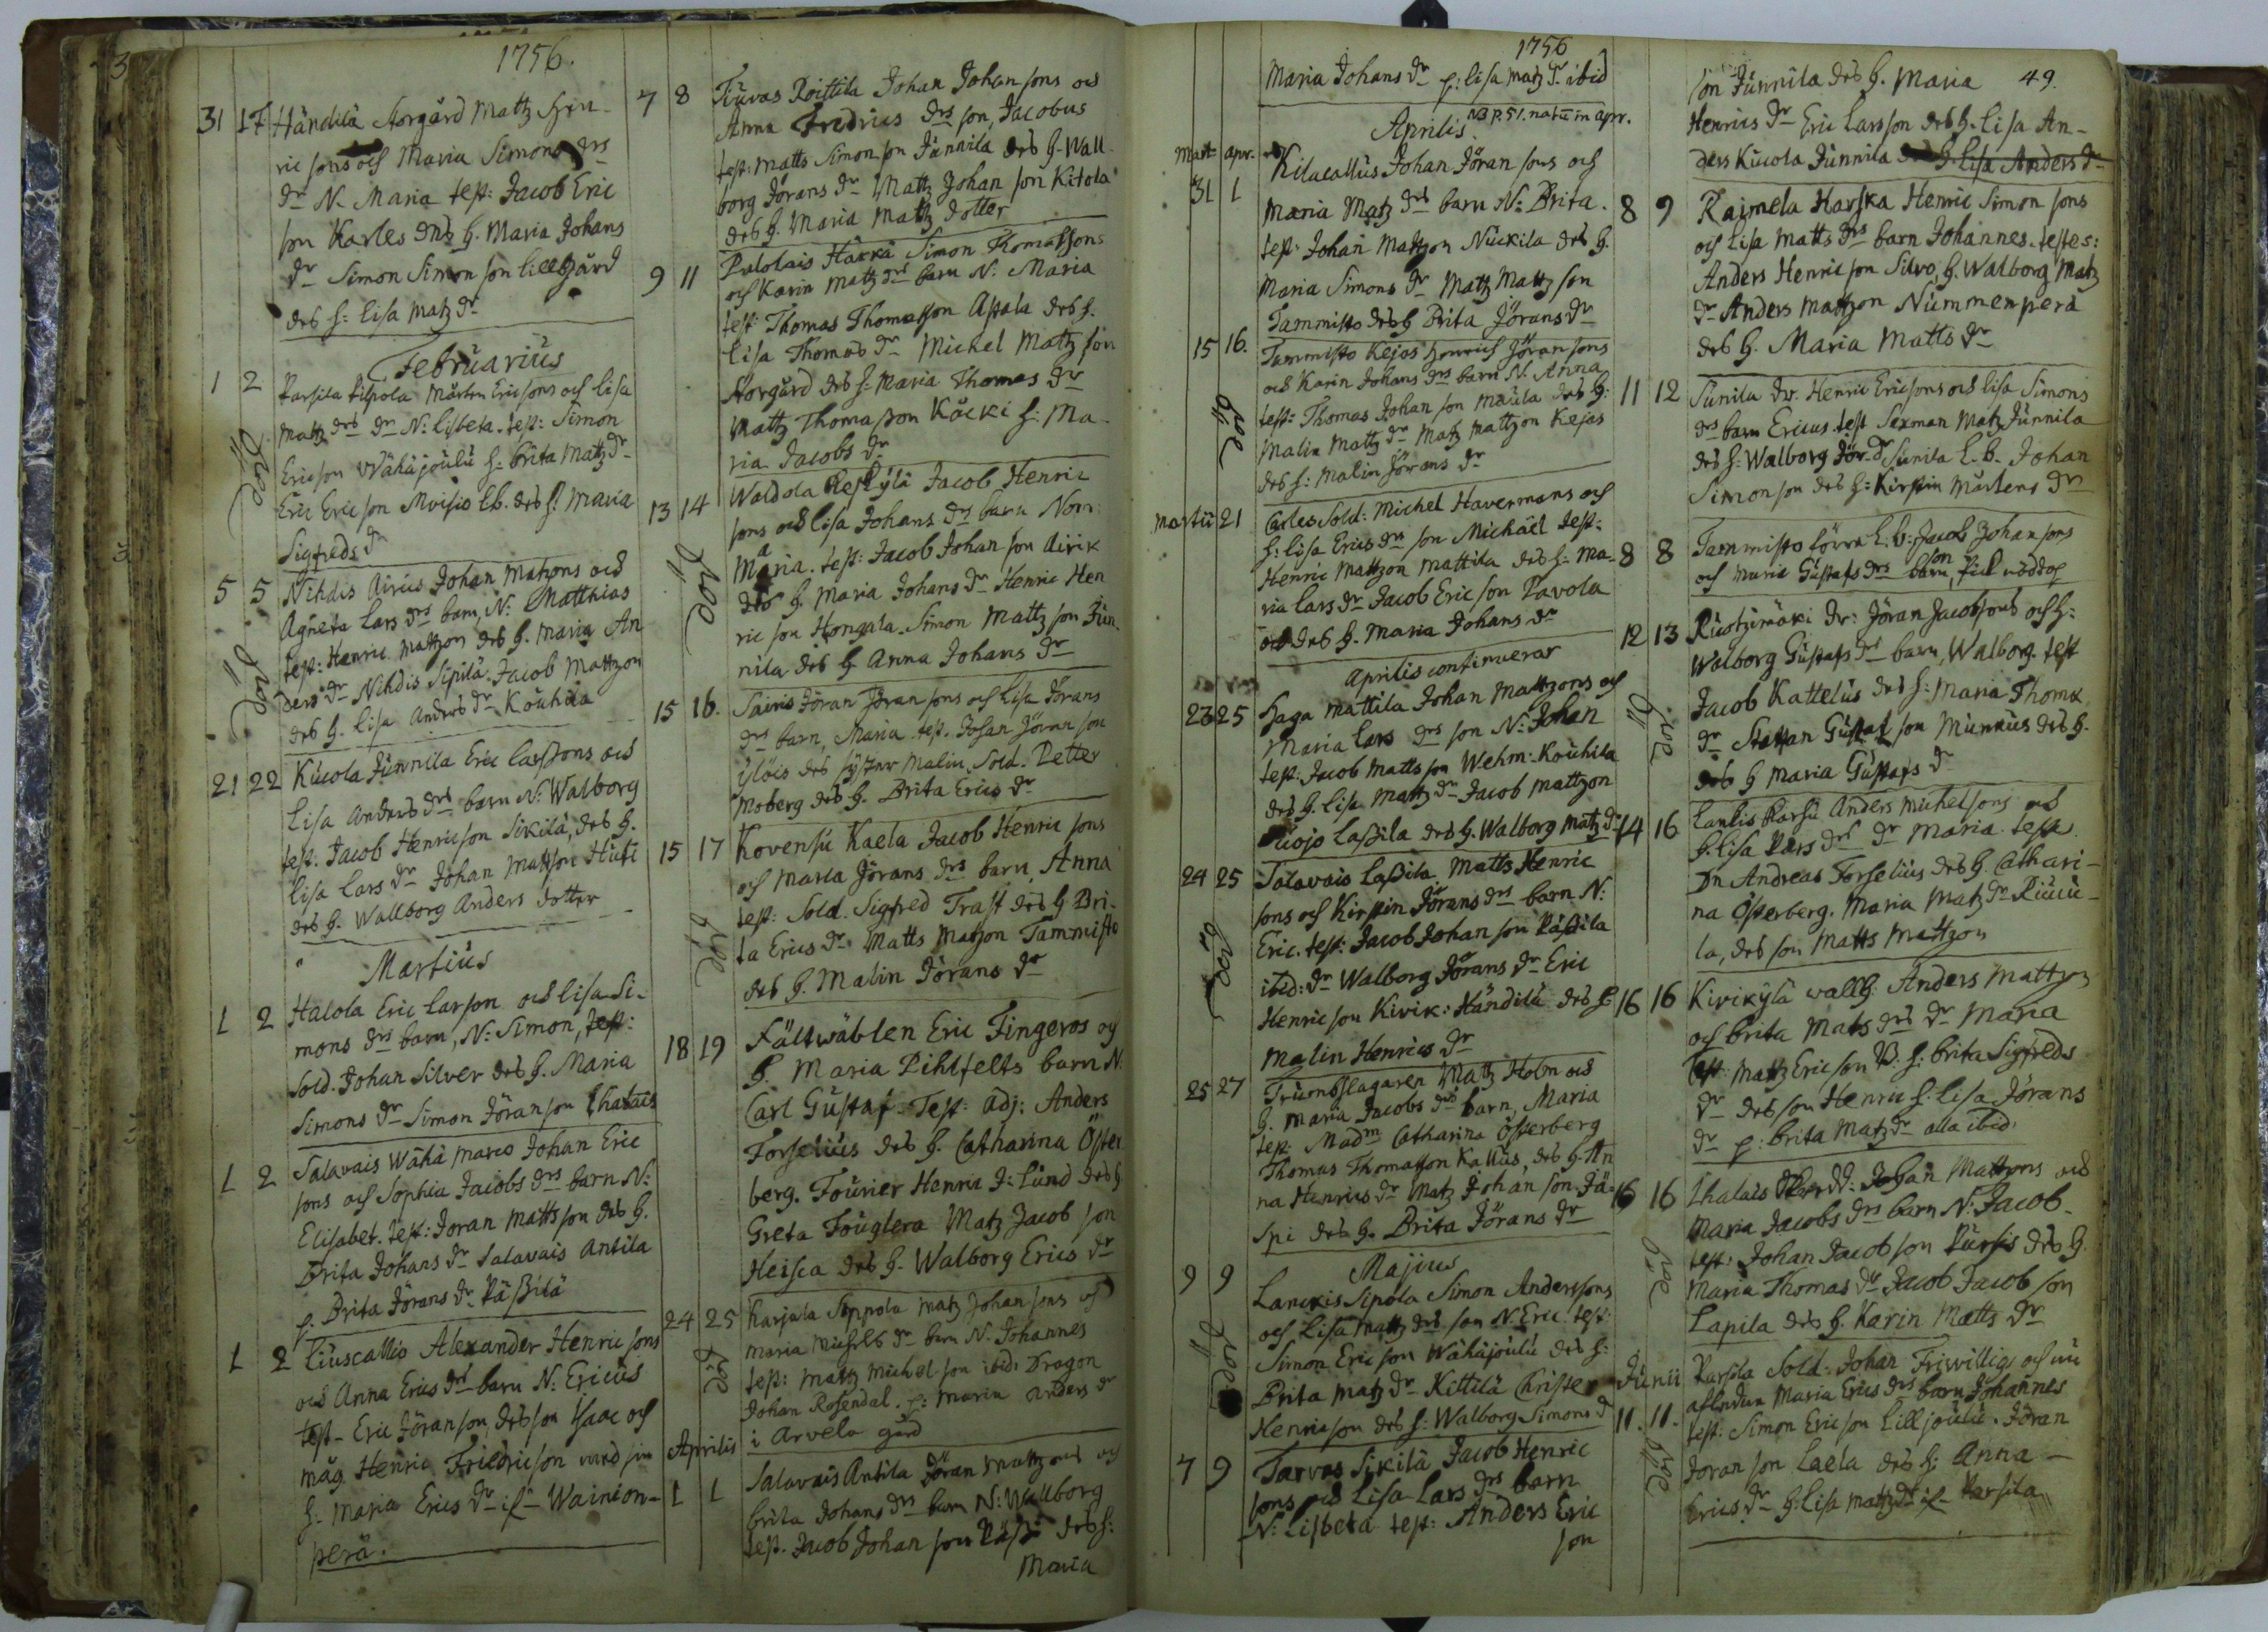 1756.
31 17 Händilä Storgård Mattz Hen-
ric sons och Maria Simons drs
dr N. Maria test: Jacob Eric
son Karles des h. Maria Johans
dr Simon Simon son Lillegård
des h: Lisa Matz dr
Februarius
1 2 Parsila Pilpola Mårten Ericsons och Lisa
Mattz drs dr N: Lisbeta. test: Simon
Ericson Wähäjoulu h: Brita Matz dr
Eric Ericson Moisio Lb. des h: Maria
Sigfreds dr
död
5 5 Nihdis Airius Johan Matzons och
Agneta Lars drs barn, N: Matthias
test: Henric Mattzon des h. Maria An
ders dr Nihdis Sipilä. Jacob Mattzon
des h. Lisa Anders dr Kouhila
död
21 22 Kucola Junnila Eric Larssons och
Lisa Anders drs barn N: Walborg
test. Jacob Henricson Sikilä, des h.
Lisa Lars dr Johan Matson Huti
des h. Wallborg Anders dotter
Martius
1 2 Halola Eric Larson och Lisa Si-
mons drs barn, N: Simon, test:
Sold. Johan Silver des h. Maria
Simons dr Simon Jöranson Lhatais
1 2 Salavais Wähä marco Johan Eric
sons och Sophia Jacobs drs barn N:
Elisabet. test: Joran Mattsson des h.
Brita Johans dr Salavais Antila
p. Brita Jörans dr Päßilä
1 2 Liuscallio Alexander Henric sons
och Anna Erics drs barn N: Ericus
test. Eric Jöranson, des son Isaac och
måg Henric Fridricson med sin
h. Maria Erics dr if Wainion-
perä.
7 8 Tiuvas Roittila Johan Johan sons och
Anna Fredrics drs son, Jacobus
test: Matts Simonson Junnila des h. Wall
borg Jörans dr Mattz Johan son Kitola
des h. Maria Mattz dotter
9 11 Palolais Härkä Simon Thomassons
och Karin Matz drs barn N. Maria
test: Thomas Thomasson Aßala des h.
Lisa Thomas dr Michel Matz son
Storgård des h: Maria Thomas dr
Mattz Thomasson Käcki h: Ma-
ria Jacobs dr
13 14 Waldola Jacob Henric
sons och Lisa Johans drs barn Nom:
Maria. test: Jacob Johan son Airik
des h. Maria Johans dr Henric Hen
ric son Hongala. Simon Mattz son Jun
nila des h. Anna Johans dr
död
15 16. Sairis Jöran Jöran sons och Lisa Jörans
drs barn, Maria. test. Johan Jöran son
Ylöis des syster Malin. Sold. Petter
Moberg des h. Brita Erics dr
15 17 Kovensu Kaela Jacob Henric sons
och Maria Jörans drs barn, Anna
test: Sold. Sigfred Trast des h. Bri-
ta Erics dr Matts Matzon Tammisto
des h. Malin Jörans dr
död
18 19 Fältwäblen Eric Fingeros och
h. Maria Pihlfelts barn N.
Carl Gustaf. Test: Adj: Anders
Forselius des h. Catharina Öster
berg. Fourier Henric J: Lund des h
Greta Fouglera Matz Jacob son
Heisca des h. Walborg Erics dr
24 25 Karjala Seppola Matz Johan sons och
Maria Michels dr barn N. Johannes
test: Mattz Michel son ibid. Dragon
Johan Rosendal. p: Maria Anders dr
i Arvela gård
död
Aprilis
1 1 Salavais Antila Jöran Matzons och
Brita Johans drs barn N: Wallborg
test. Jacob Johan son Päßi des h:
Maria
1756
Maria Johans dr p: Lisa Matz dr ibid
NB p. 51. natu in apr.
Aprilis.
Mart apr.
31 1 Kilacallus Johan Jöran sons och
Maria Matz drs barn N: Brita.
test: Johan Mattzon Nuckila des h.
Maria Simons dr Mattz Mattz son
Tammisto des h Brita Jörans dr
15 16. Tammisto Kejos Henrich Jöran sons
och Karin Johans drs barn N. Anna
test: Thomas Johan son Maula des h:
Malin Mattz dr Matz Mattzon Kejos
des h: Malin Jörans dr
död
Martii 21 Carles Sold: Michel Havermans och
h: Lisa Erics drs son Michäel test:
Henric Mattzon Mattila des h: Ma-
ria Lars dr Jacob Ericson Pavola
och des h. Maria Johans dr
Aprilis continuerar
23 25 Haga Mattila Johan Mattzons och
Maria Lars drs son N: Johan
test: Jacob Mattsson Wehm: Kouhila
des h. Lisa Mattz dr Jacob Mattzon
Laßila des h. Walborg Matz dr
24 25 Salavais Laßila Matts Henric
sons och Kirstin Jörans drs barn N:
Eric. test: Jacob Johan son Päßila
ibid: dr Walborg Jörans dr Eric
Henric son Kivik: Händilä des h
Malin Henrics dr
död
25 27 Trumbslagaren Matz Holm och
h. Maria Jacobs drs barn, Maria
test: Madm Catharina Österberg
Thomas Thomasson Kallus, des h. An
na Henrics dr Matz Johan son Jä-
spi des h. Brita Jörans dr
Majus
9 9 Lanckis Sipola Simon Anderssons
och Lisa Mattz drs son N. Eric. test:
Simon Ericson Wähäjoulu des h:
Brita Matz dr Kittilä Christer
Henricson des h: Walborg Simons d
död
7 9 Tarvas Sikilä Jacob Henric
sons och Lisa Lars drs barn
N: Lisbeta test: Anders Eric
son
49.
son Junnila des h. Maria
Henrics dr Eric Larsson des h. Lisa An-
ders Kucola Junnila des h. Lisa Anders dr
8 9 Raimela Harska Henric Simon sons
och Lisa Matts drs barn Johannes. testes:
Anders Henric son Silvo, h. Walborg Matz
dr Anders Mattzon Nummenperä
des h. Maria Matts dr
11 12 Sunila Dr. Henric Ericsons och Lisa Simons
drs barn Ericus. test Saxman Matz Junnila
des h. Walborg Jör. d Sunila L.b. Johan
Simonson des h: Kirstin Mårtens dr
8 8 Tammisto L.b. Jacob Johan sons
och Maria Gustafs drs son, fick nöddop
12 13 Ruotzimäki Dr: Jöran Jacobsons och h:
Walborg Gustafs drs barn, Walborg. test
Jacob Kattelus des h: Maria Thoms
dr Staffan Gustaf son Munkus des h.
des h Maria Gustafs dr
död
14 16 Lankis Karhu Anders Michelsons och
h. Lisa Lars drs dr Maria. test
Dn Andreas Forselius des h. Cathari-
na Österberg. Maria Matz dr Kuuu-
la, des son Matts Mattzon
16 16 Kivikylä wallh: Anders Mattzons
och Brita Mats drs dr Maria
Test: Mattz Ericson B. h: Brita Sigfreds
dr des son Henric h. Lisa Jörans
dr p: Brita Matz dr alla ibid.
16 16 Lhatais Johan Mattzons och
Maria Jacobs drs barn N: Jacob.
test: Johan Jacob son Pursis des h.
Maria Thomas dr Jacob Jacob son
Lapila des h. Karin Matts dr
död
Junii
11. 11. Parsila Sold: Johan Friwillig och nu
afledne Maria Erics drs barn Johannes
test: Simon Ericson Lilljoulu. Jöran
Joran son Laela des h: Anna
Erics dr h: Lisa Mattz dr if Parsila
död